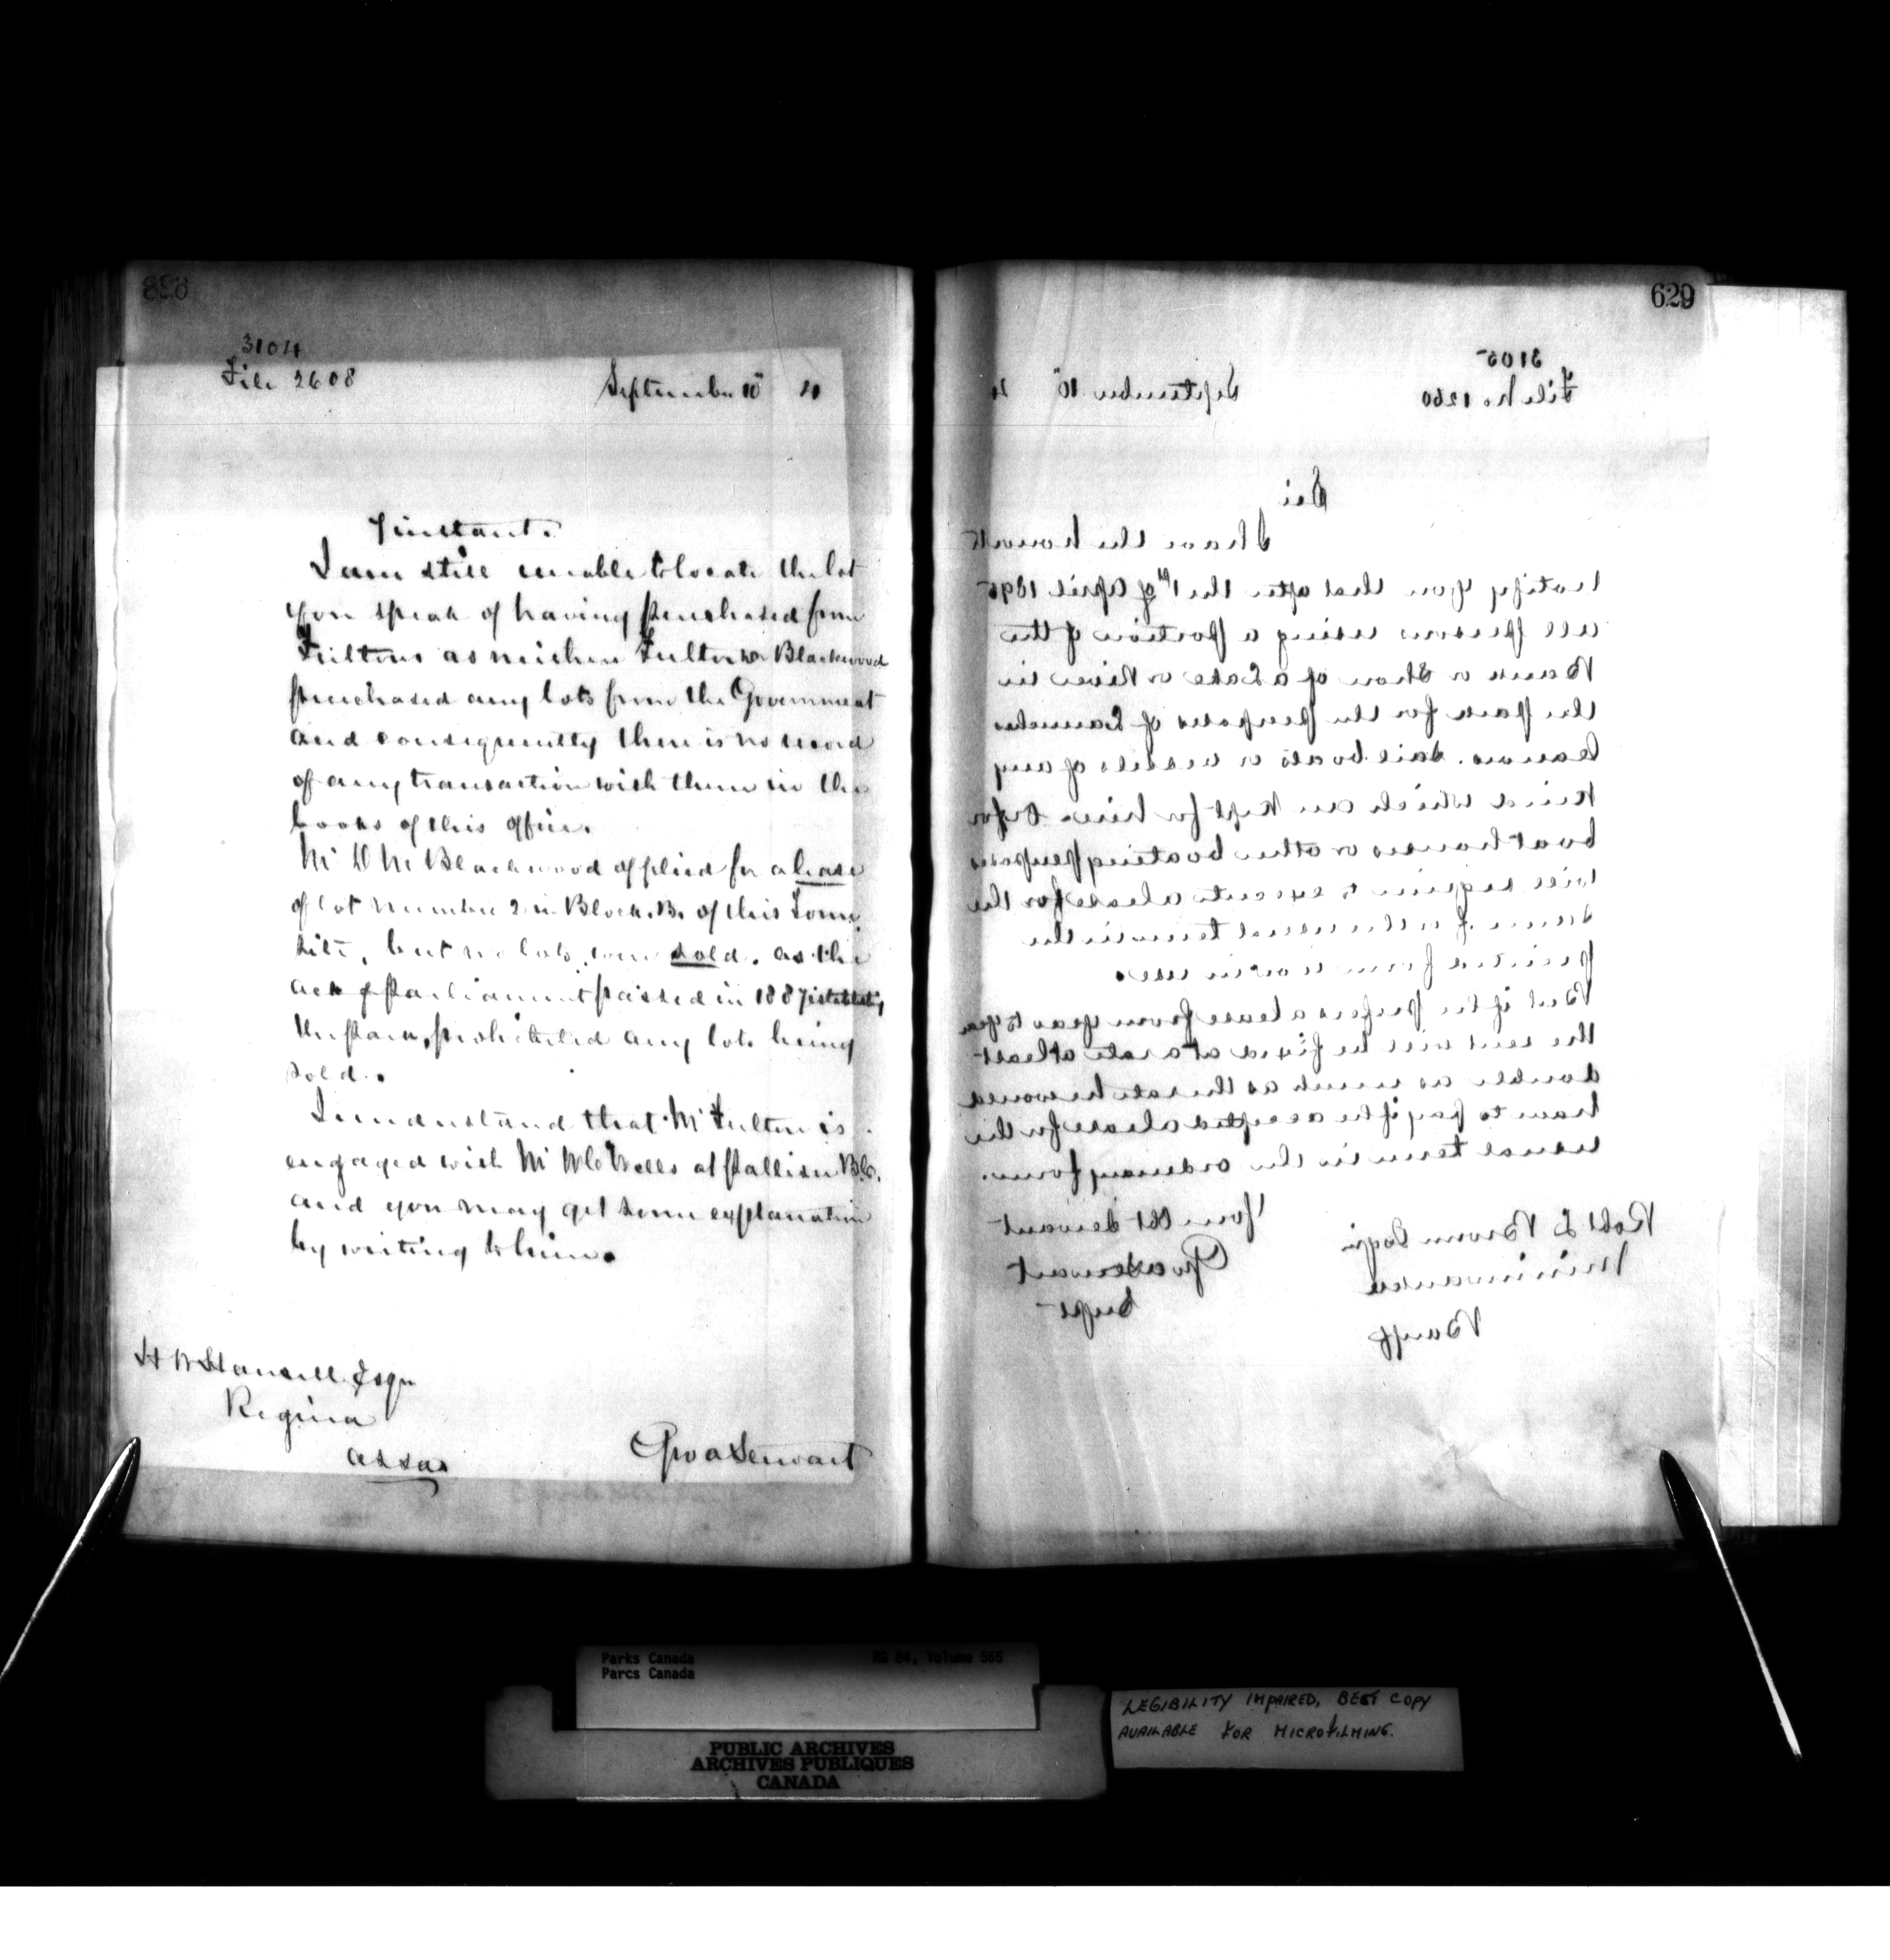 628
3104
File 2608
September 10" 4
7 instant.
I am still unable to locate the lot
you speak of having purchased from
Fultons as neither Fulton or Blackwood
purchased any lots from the Government
and consequently there is no record
of any transaction with them in the
books of this office.
Mr D M Blackwood applied for a lease
of lot number 2 in Block B. of this Town
site, but no lots were sold. as the
act of Parliament passed in 1887 establishing
the park, prohibited any lots being
sold.
I understand that Mr Fulton is
engaged with Mr W C Wells at Palliser B.C.
and you may get some explanation
by writing to him.
Esqr
Regina
Assa
Geo A Stewart
629
3105
File No 1260
September 10" 4
Sir
I have the honour to
notify you that after the 1st of April 1895
all persons using a portion of the
Bank or Shore of a Lake or River in
the park for the purposes of Launches
Canoes. Sail boats or vessels of any
kind which are kept for hire. Or for
boat houses or other boating purposes
will require to execute a lease for the
same for the usual term in the
printed form now in use.
But if he prefers a lease from year to year
the rent will be fixed at a rate at least
double as much as the rate he would
have to pay if he accepted a lease for the
usual term in the ordinary form.
Your Obt Servant
Geo A Stewart
Supt
Robt L Brown Esqr
Minnewanka
Banff
Parks Canada
Parcs Canada
RG 84, Volume 565
PUBLIC ARCHIVES
ARCHIVES PUBLIQUES
CANADA
LEGIBILITY IMPAIRED, BEST COPY
AVAILABLE FOR MICROFILMING.